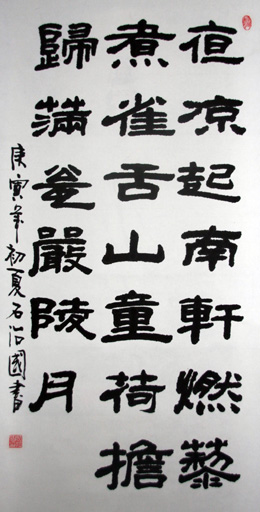 夜凉起南軒燃藜
煮雀舌山童荷擔
歸滿瓮嚴陵月
庚寅年初夏石治國書